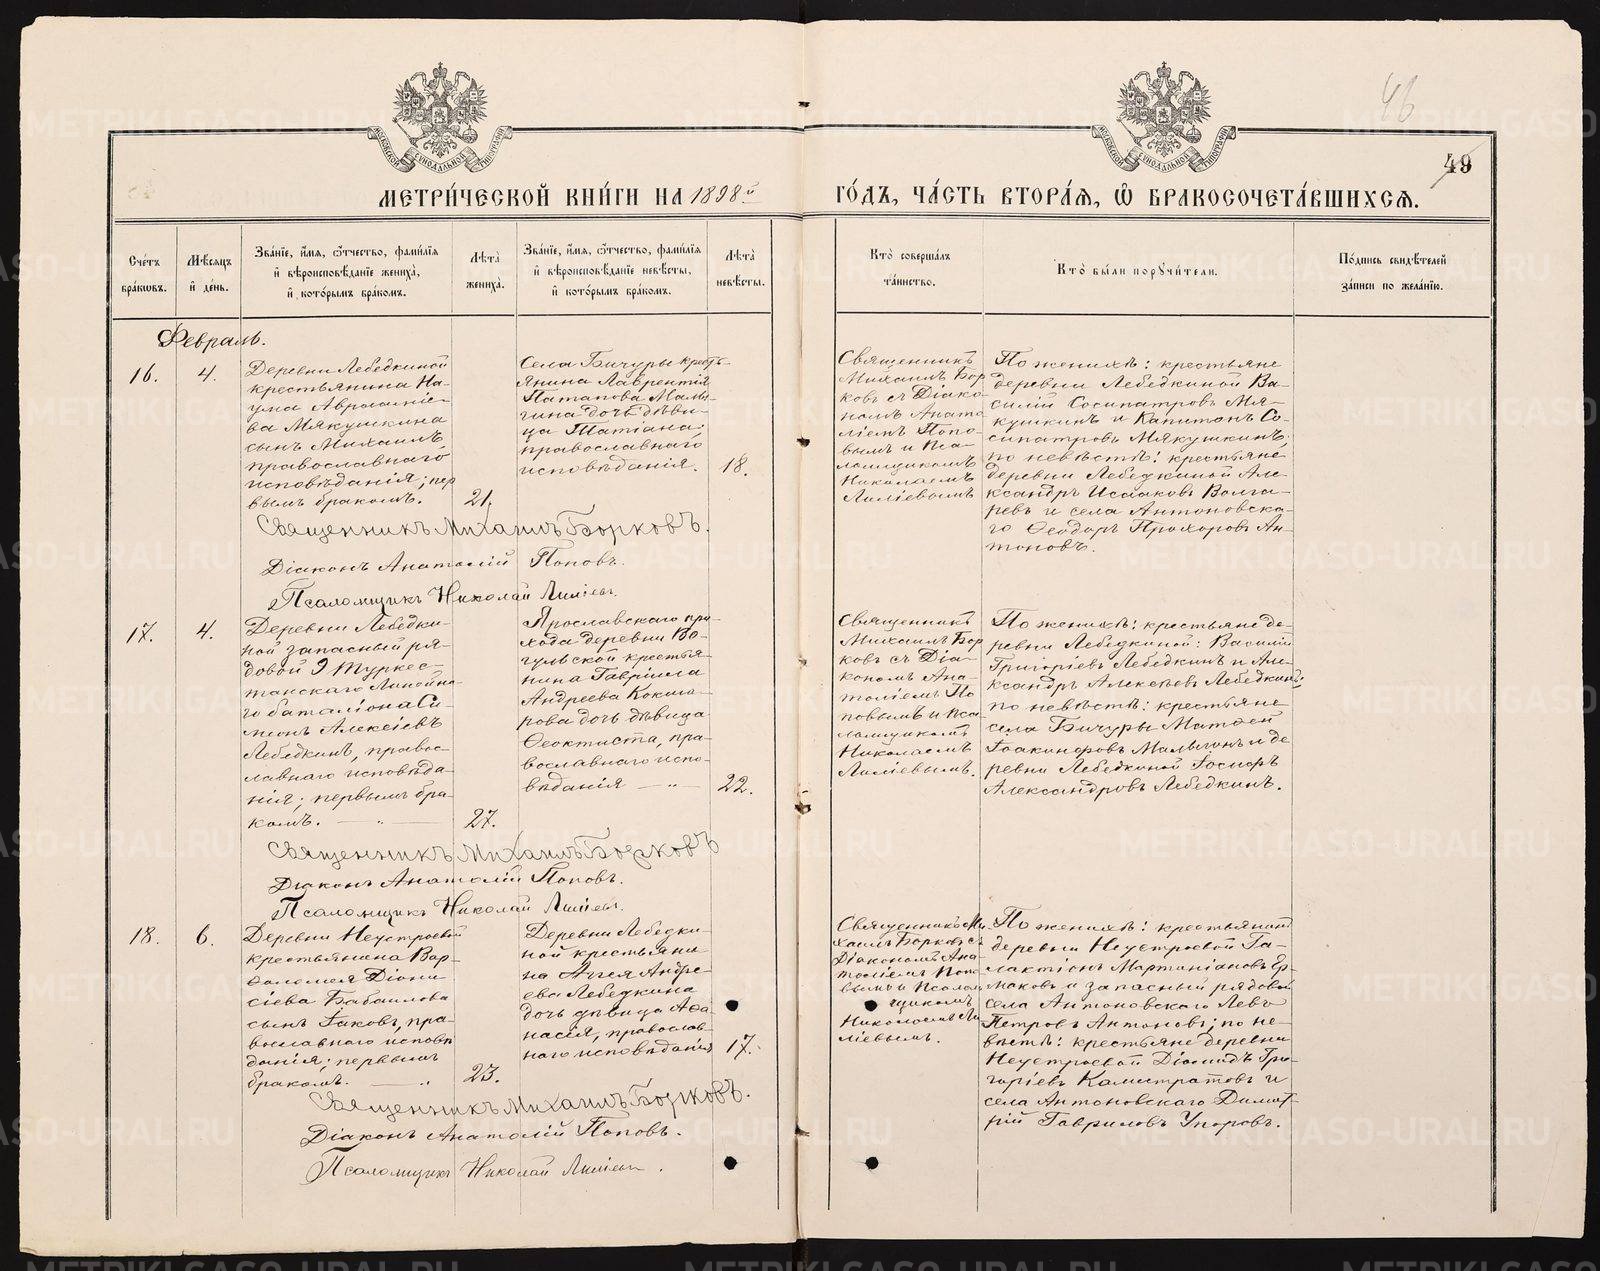 46
49
МЕТРИ́ЧЕСКОЙ КНИ́ГИ НА 1898й ГО́ДЪ, ЧА́СТЬ ВТОРА́Я, Ѡ БРАКОСОЧЕТА́ВШИХСЯ.
Сче́тъ бра́ковъ.
Мѣсяцъ и де́нь.
Зва́нїе, и́мя, ѻ́тчество, фами́лїя и вѣроисповѣ́данїе жениха̀, и кото́рымъ бра́комъ.
Лѣта̀ жениха̀.
Зва́нїе, и́мя, ѻ́тчество, фами́лїя и вѣроисповѣ́данїе невѣ́сты, и кото́рымъ бра́комъ.
Лѣта̀ невѣ́сты.
Кто̀ соверша́лъ та́инство.
Кто̀ бы́ли пору́чители.
По́дпись свидѣ́телей за́писи по жела́нїю.
Февраль.
16.
4.
Деревни Лебедкиной
крестьянина На-
ума Авраміе-
ва Мякушкина
сынъ Михаилъ,
православнаго
исповѣданія; пер
вымъ бракомъ.
21.
Села Бичуры кресть-
янина Лаврентія
Патапова Малы-
гина дочь дѣви-
ца Татіана;
православнаго
исповѣданія.
18.
Священникъ
Михаилъ Бор
ковъ съ Діако-
номъ Анато
ліемъ Попо-
вымъ и Пса-
ломщикомъ
Николаемъ
Лиліевымъ
По женихѣ: крестьяне
деревни Лебедкиной Ва-
силій Сосипатровъ Мя-
кушкинъ и Капитонъ Со-
сипатровъ Мякушкинъ;
по невѣстѣ: крестьяне
деревни Лебедкиной Але-
ксандръ Исааковъ Волга-
ревъ и села Антоновска-
го Ѳеодоръ Прохоровъ Ан-
тоновъ.
Священникъ Михаилъ Борковъ.
Діаконъ Анатолій Поповъ.
Псаломщикъ Николай Лиліевъ.
17.
4.
Деревни Лебедки-
ной запасный ря-
довой 9 Туркес-
танскаго Линейна-
го баталіона Си-
меонъ Алексіевъ
Лебедкинъ, правос-
лавнаго исповѣда-
нія; первымъ бра-
комъ. — „ —
27.
Ярославскаго при-
хода деревни Во-
гульской крестья-
нина Гавріила
Андреева Кокша-
рова дочь дѣвица
Ѳеоктиста, пра-
вославнаго испо-
вѣданія — „ —
22.
Священникъ
Михаилъ Бор
ковъ съ Діа-
кономъ Ана-
толіемъ По
повымъ и Пса-
ломщикомъ
Николаемъ
Лиліевымъ.
По женихѣ: крестьяне де-
ревни Лебедкиной: Василій
Григоріевъ Лебедкинъ и Але-
ксандръ Алексѣевъ Лебедкинъ;
по невѣстѣ: крестьяне
села Бичуры Матѳей
Іоакинфовъ Малыгинъ и де
ревни Лебедкиной Іосифъ
Александровъ Лебедкинъ.
Священникъ Михаилъ Борковъ
Діаконъ Анатолій Поповъ.
Псаломщикъ Николай Лиліевъ.
18.
6.
Деревни Неустроевой
крестьянина Вар-
ѳоломея Діони-
сіева Бабаилова
сынъ Іаковъ, пра-
вославнаго исповѣ
данія; первымъ
бракомъ. — „
23.
Деревни Лебедки-
ной крестьяни-
на Аггея Андре-
ева Лебедкина
дочь дѣвица Аѳа-
насія, православ-
наго исповѣданія
17.
Священникъ Ми-
хаилъ Борковъ съ
Діакономъ Ана-
толіемъ Попо
вымъ и Псалом
щикомъ
Николаемъ Ли-
ліевымъ.
По женихѣ: крестьянинъ
деревни Неустроевой Га-
лактіонъ Мартиніановъ Ер-
маковъ и запасный рядовой
села Антоновскаго Левъ
Петровъ Антоновъ; по не-
вѣстѣ: крестьяне деревни
Неустроевой Діомидъ Гри-
горіевъ Калистратовъ и
села Антоновскаго Димит-
рій Гавриловъ Упоровъ.
Священникъ Михаилъ Борковъ.
Діаконъ Анатолій Поповъ.
Псаломщикъ Николай Лиліевъ.
METRIKI.GASO-URAL.RU